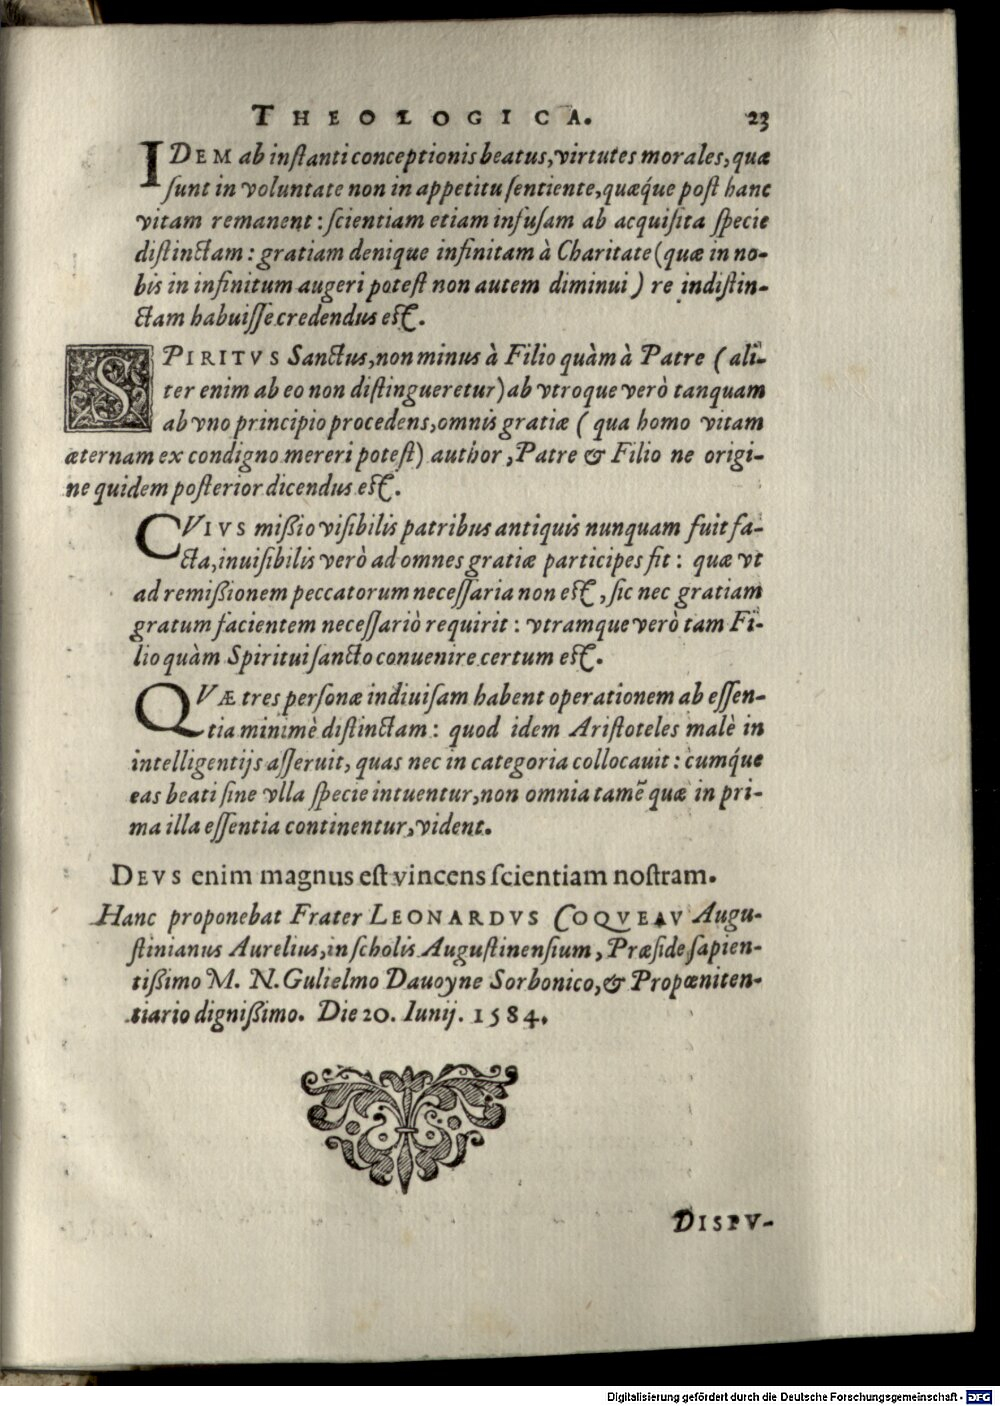 THEOLOGICA. 23
IDEM ab instanti conceptionis beatus, virtutes morales, quæ
sunt in voluntate non in appetitu sentiente, quæq́ue post hanc
vitam remanent : scientiam etiam infusam ab acquisita specie
distinctam : gratiam denique infinitam à Charitate ( quæ in no-
bis in infinitum augeri potest non autem diminui ) re indistin-
ctam habuisse credendus est.
SPIRITVS Sanctus, non minus à Filio quàm à Patre ( ali-
ter enim ab eo non distingueretur ) ab vtroque verò tanquam
ab vno principio procedens, omnis gratiæ ( qua homo vitam
æternam ex condigno mereri potest ) author, Patre & Filio ne origi-
ne quidem posterior dicendus est.
CVIVS mißio visibilis patribus antiquis nunquam fuit fa-
cta, inuisibilis verò ad omnes gratiæ participes fit : quæ vt
ad remißionem peccatorum necessaria non est, sic nec gratiam
gratum facientem necessariò requirit : vtramque verò tam Fi-
lio quàm Spiritui sancto conuenire certum est.
QVÆ tres personæ indiuisam habent operationem ab essen-
tia minimè distinctam : quod idem Aristoteles malè in
intelligentijs asseruit, quas nec in categoria collocauit : cumq́ue
eas beati sine vlla specie intuentur, non omnia tamẽ quæ in pri-
ma illa essentia continentur, vident.
DEVS enim magnus est vincens scientiam nostram.
Hanc proponebat Frater LEONARDVS COQVEAV Augu-
stinianus Aurelius, in scholis Augustinensium, Præside sapien-
tißimo M. N. Gulielmo Dauoyne Sorbonico, & Propœniten-
tiario dignißimo. Die 20. Iunij. 1584.
DISPV-
Digitalisierung gefördert durch die Deutsche Forschungsgemeinschaft - DFG